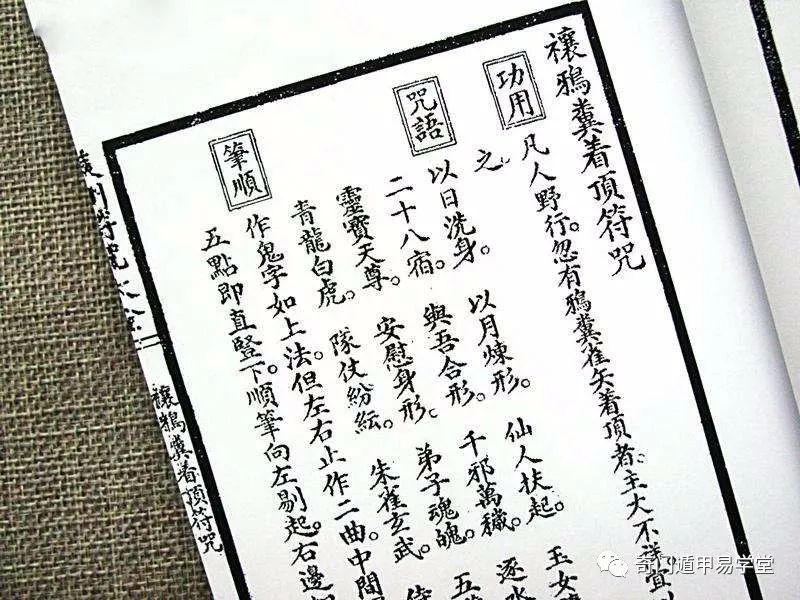 禳鴉糞着頂符咒
功用
凡人野行。忽有鴉糞雀矢着頂者。主大不祥。宜
之。
咒語
以日洗身。以月煉形。仙人扶起。玉女
二十八宿。與吾合形。千邪萬穢。逐水
靈寶天尊。安慰身形。弟子魂魄。五
青龍白虎。隊仗紛紜。朱雀玄武。侍
筆順
作鬼字如上法。但左右止作二曲。中間
五點即直豎下。順筆向左剔起。右邊
符咒大全二
禳鴉糞着頂符咒
奇门遁甲易学堂